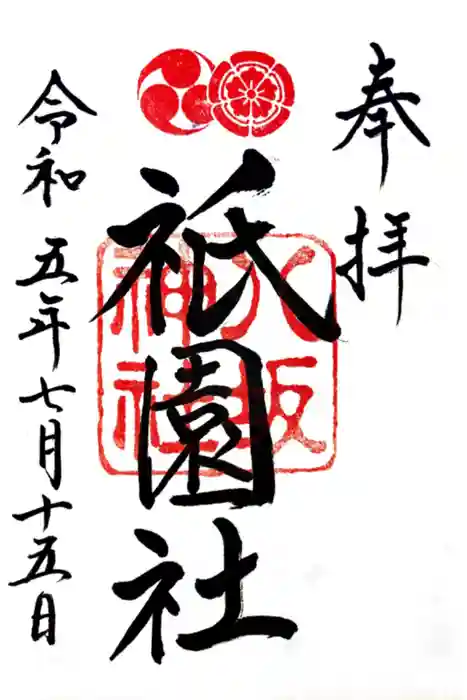 奉拝
祇園社
八坂神社
令和五年七月十五日